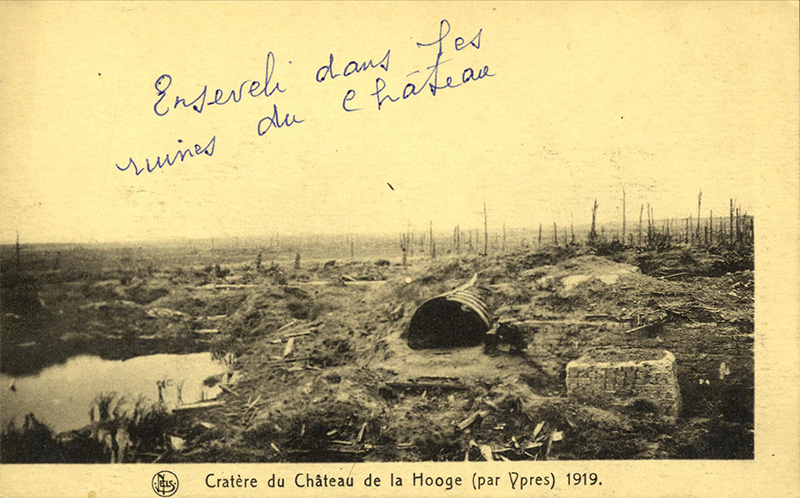 Enseveli dans les
ruines du château
NELS
Cratère du Château de la Hooge (par Ypres) 1919.